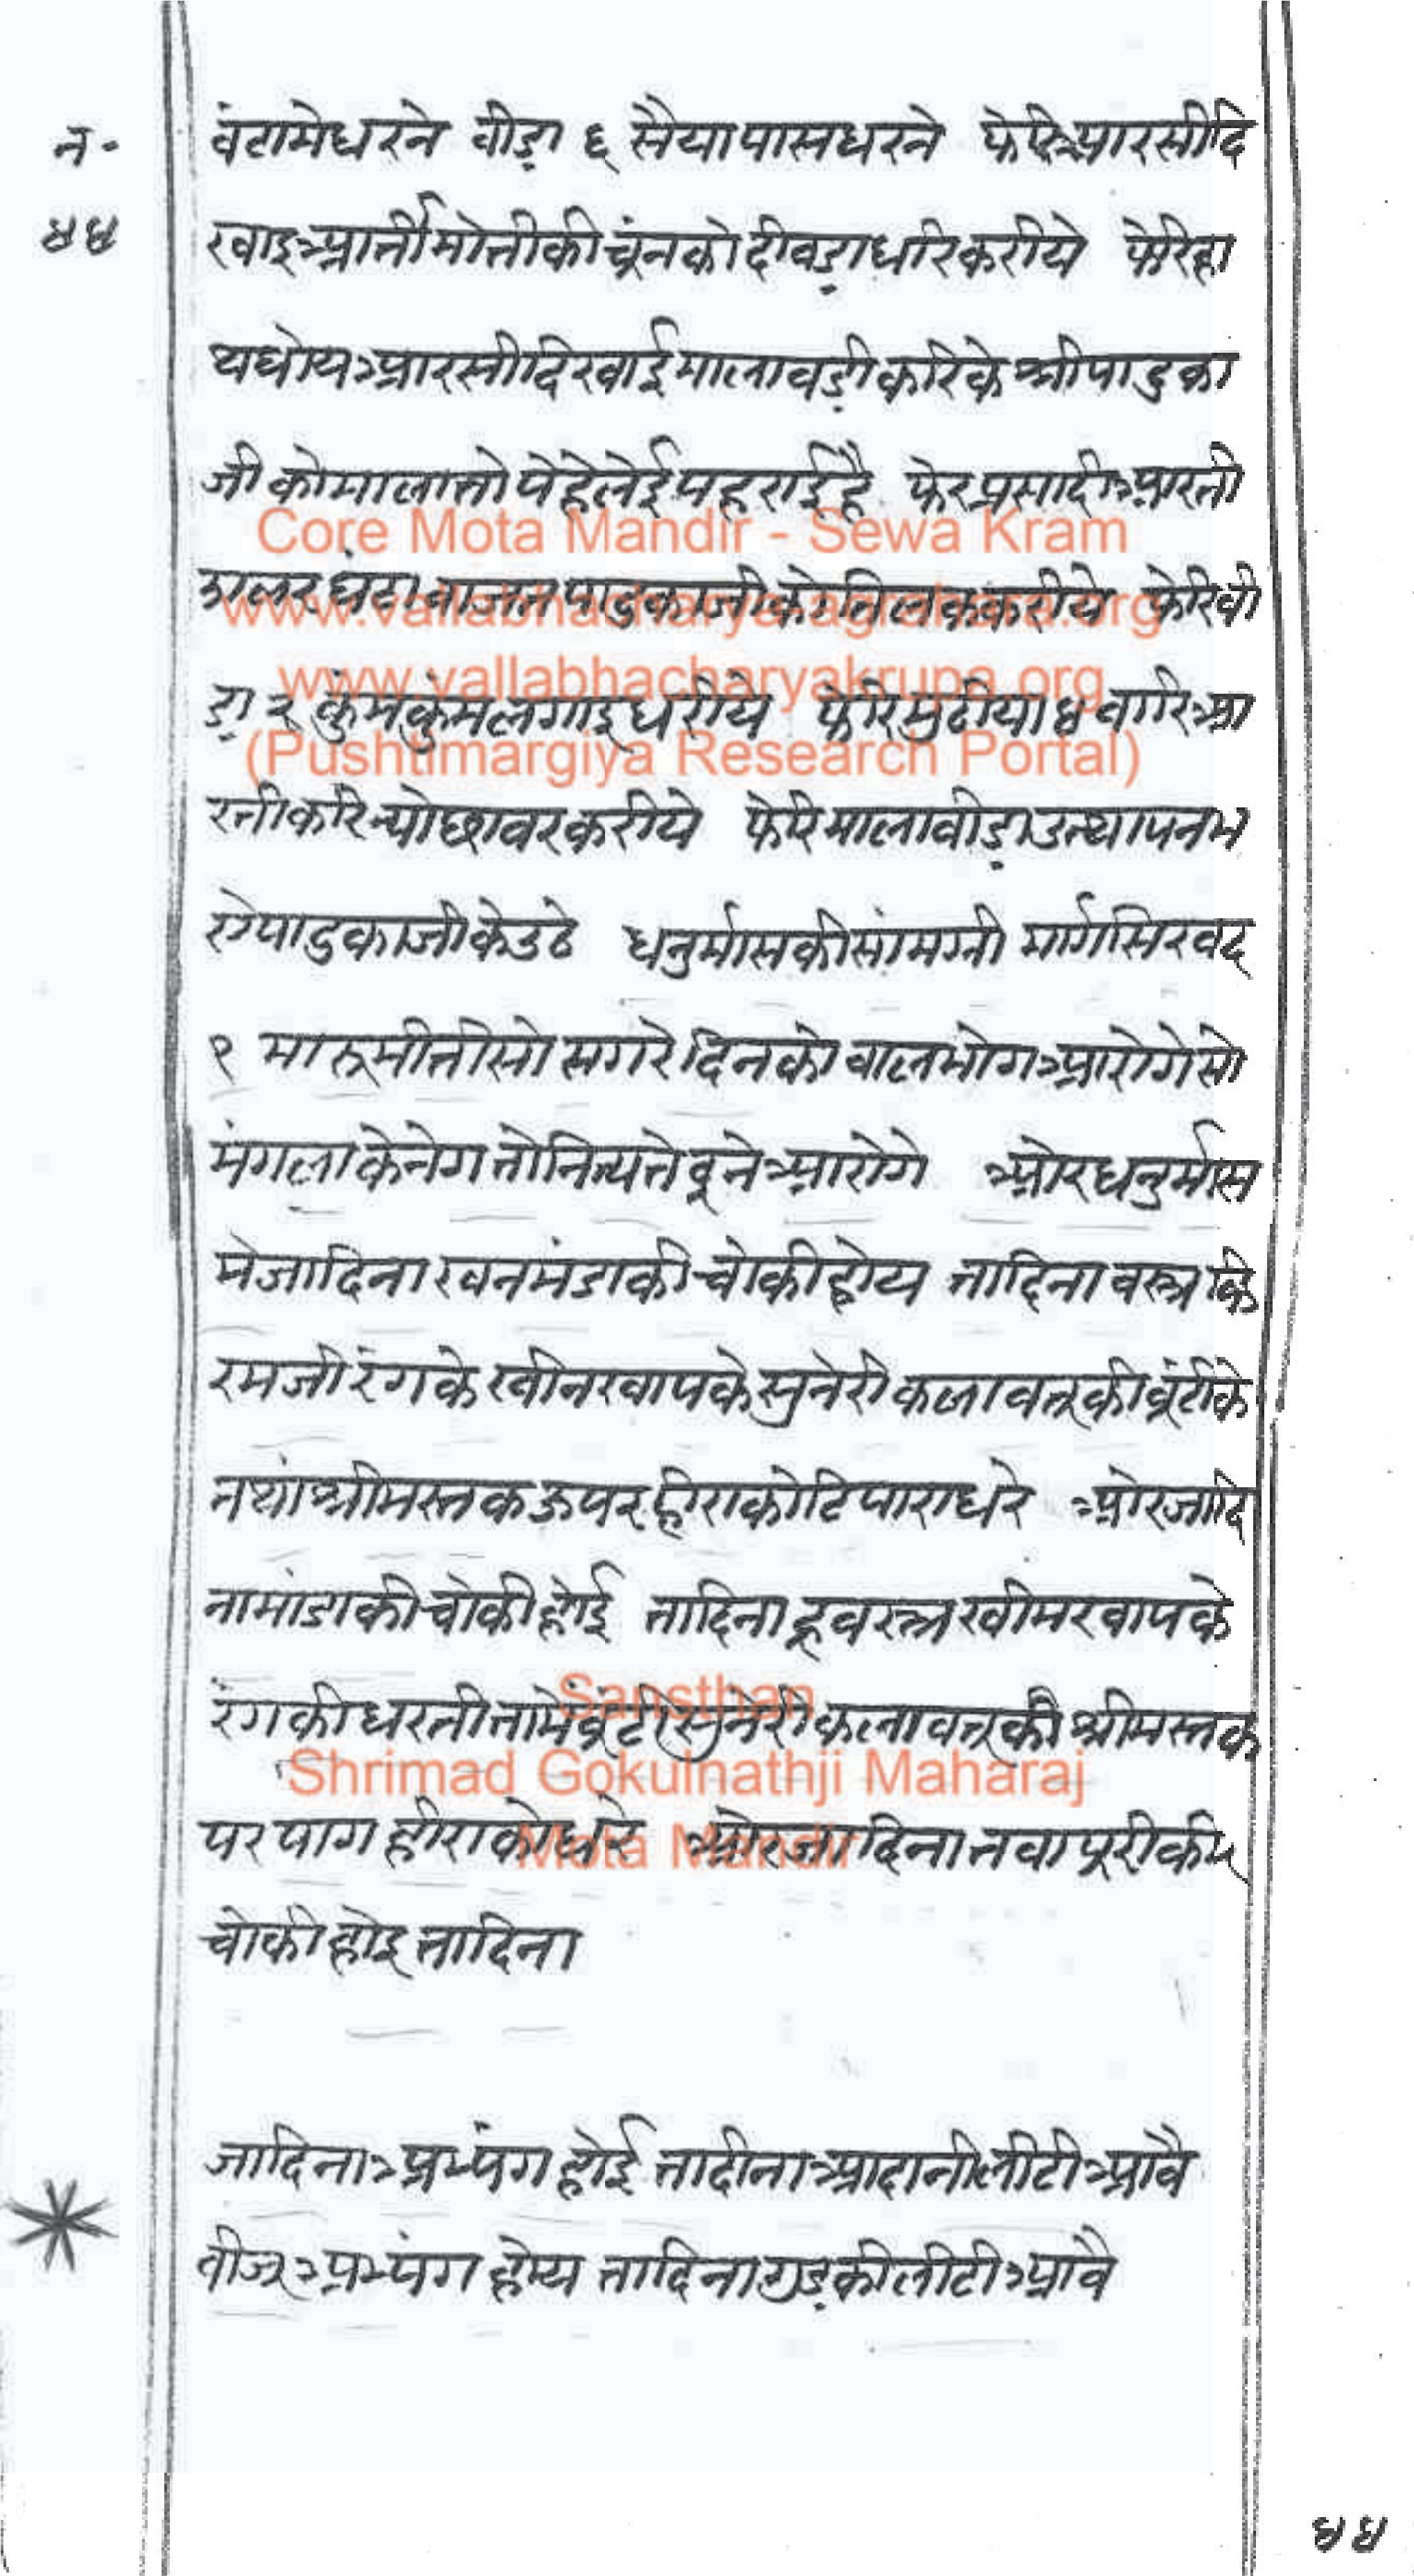 न॰
४४
वंटामेधरने वीड़ा ६ सैयापासधरने फेरिआरसीदि
खाइआर्तीमोतीकीचूंनकोदीवड़ाधरिकरीये फेरिहा
थधोयआरसीदिखाईमालावड़ीकरिके श्रीपाडुका
जीकोमालातोपेहेलेईपहराईहै फेरप्रसादीआरती
झालरघंटावाजतपाडुकाजीकोतिलककरीये फेरिवी
ड़ा २ कुंमकुंमलगाइधरीये फेरिमुठीया ४ वारिआ
रतीकरिन्योछावरकरीये फेरिमालावीड़ाउत्थापनभ
रोपाडुकाजीकेउठे धनुर्मासकीसांमग्री मार्गसिरवद
१ मारूमीतीसो सगरेदिनकोवालभोगआरोगेसो
मंगलाकेनेगतोनित्यतेवूनेआरोगे ओरधनुर्मास
मेजादिनाखनमंडाकीचोकीहोय तादिनावस्त्रकि
रमजीरंगके खीनखापकेसुनेरीकलावत्तूकीबूंटीके
तथांश्रीमस्तकऊपरहीराकोटिपाराधरे ओरजादि
नामांडाकीचोकीहोई तादिनाहूवस्त्रखीमखापके
रंगकीधरतीतामेंबूंटीसुनेरीकलावत्तूकीश्रीमस्तक
परपागहीराकोधरे ओरजादिनातवापूरीकी
चोकीहोइतादिना
जादिनाअभ्यंगहोई तादीनाआदानीलीटीआवै
वीजूअभ्यंगहोय तादिनागुड़कीलीटीआवै
४४
Core Mota Mandir - Sewa Kram
www.vallabhacharyaagrahara.org
www.vallabhacharyakrupa.org
(Pushtimargiya Research Portal)
Sansthan
Shrimad Gokulnathji Maharaj
Mota Mandir